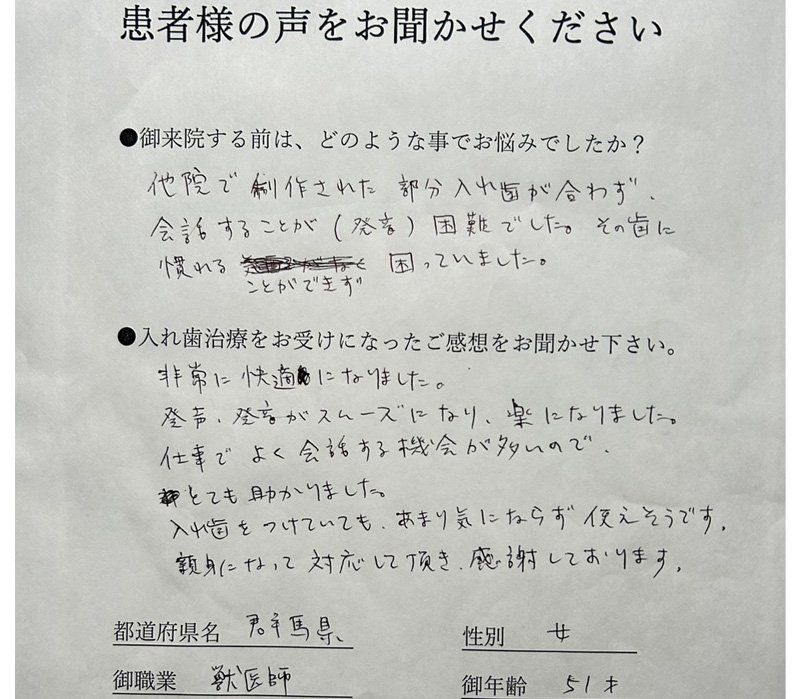 患者様の声をお聞かせください
●御来院する前は、どのような事でお悩みでしたか？
他院で制作された部分入れ歯が合わず、
会話することが(発音)困難でした。その歯に
慣れる 困っていました。
ことができず
●入れ歯治療をお受けになったご感想をお聞かせ下さい。
非常に快適になりました。
発声、発音がスムーズになり、楽になりました。
仕事でよく会話する機会が多いので、
とても助かりました。
入れ歯をつけていても、あまり気にならず使えそうです。
親身になって対応して頂き、感謝しております。
都道府県名 群馬県、 性別 女
御職業 獣医師 御年齢 51才